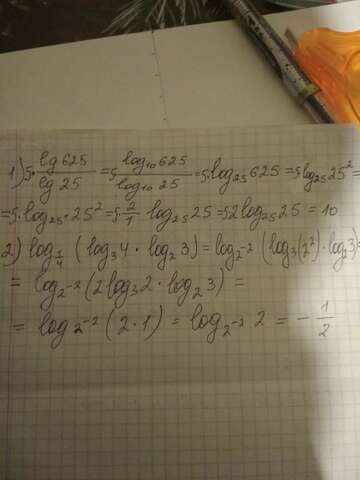 1) 5·lg 625/lg 25 = 5·log₁₀625/log₁₀25 = 5·log₂₅625 = 5 log₂₅25² =
= 5·log₂₅·25² = 5·2/1 log₂₅25 = 5·2log₂₅25 = 10
2) log_{1/4} (log₃4 · log₂3) = log_{2⁻²} (log₃(2²)·log₂3) =
= log_{2⁻²} (2log₃2 · log₂3) =
= log_{2⁻²} (2·1) = log_{2⁻²} 2 = -1/2